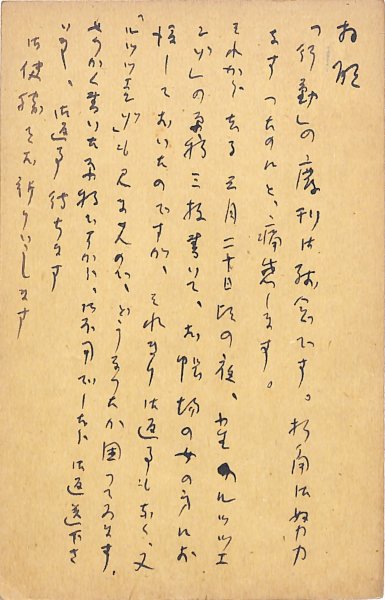 お願
「行動」の廃刊は残念です。折角御努力
なすつたのにと、痛感します。
それから去る三月二十日頃の夜、小生のルツツエ
の原稿三枚書いて、お帳場の女の方にお
渡しておいたのですが、それきり御返事もなく、又
も見ませんので、どうなつたか困つております。
せつかく書いた原稿ですから、御不用でしたら御返送下さ
いませ、御返事待ちます
御健勝をお祈りいたします